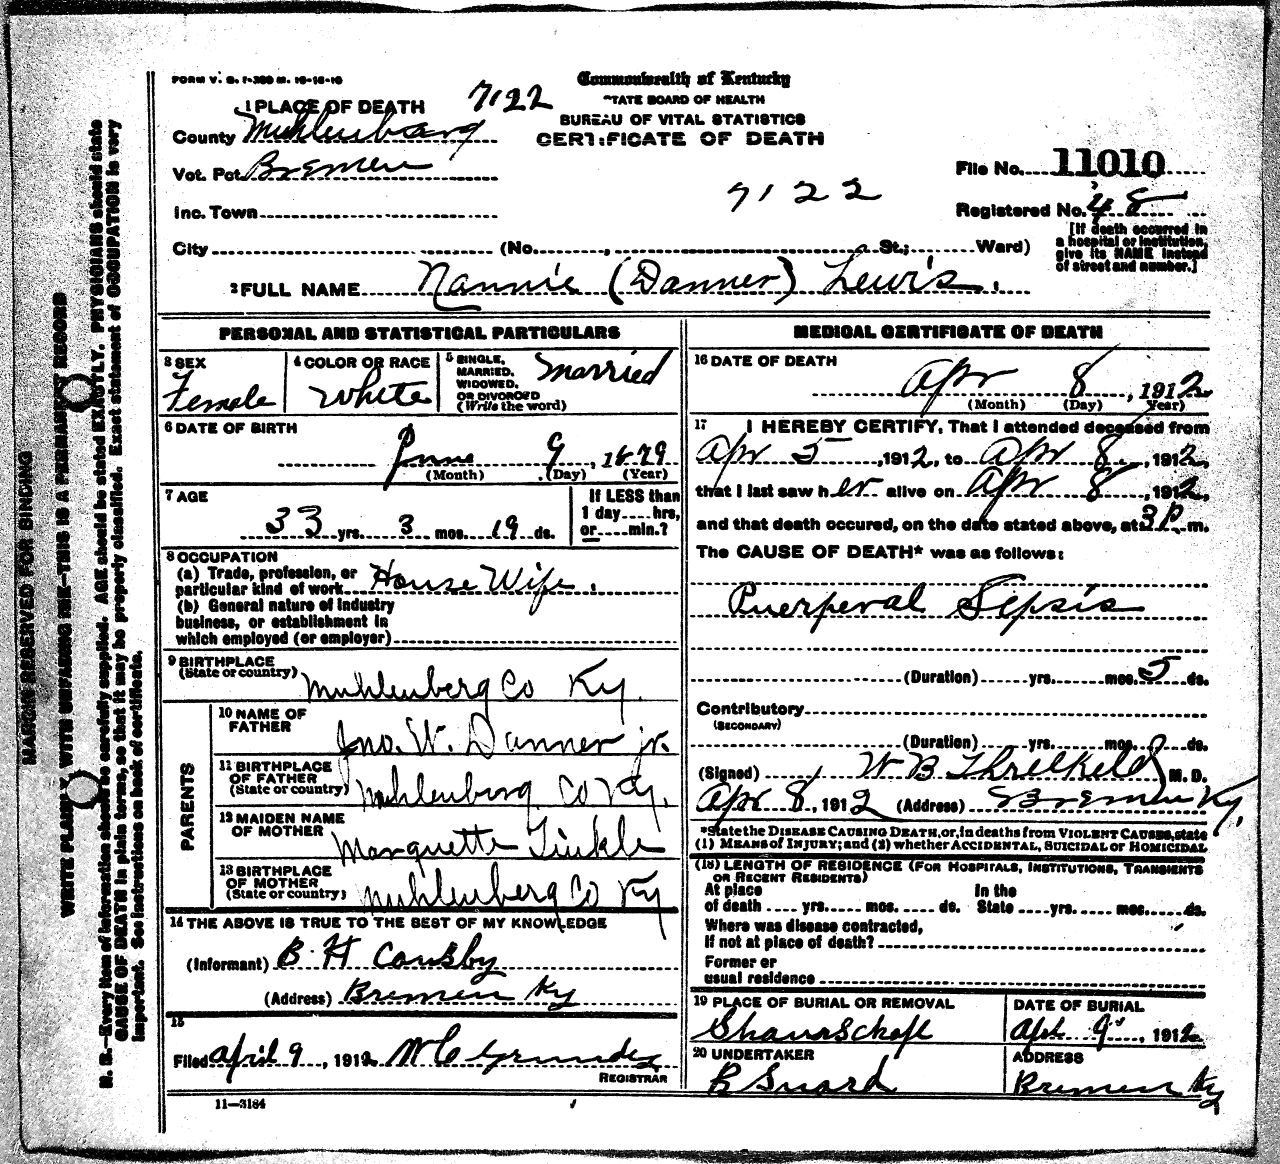 FORM V. S. 1-300 M. 10-18-10
Commonwealth of Kentucky
STATE BOARD OF HEALTH
BUREAU OF VITAL STATISTICS
CERTIFICATE OF DEATH
1 PLACE OF DEATH 7122
County Muhlenberg
Vot. Pct. Bremen
Inc. Town
7122
File No. 11010
Registered No. 48
[If death occurred in a hospital or institution, give its NAME instead of street and number.]
City (No. , St.; Ward)
2 FULL NAME Nannie (Danner) Lewis.
PERSONAL AND STATISTICAL PARTICULARS
3 SEX Female
4 COLOR OR RACE White
5 SINGLE, MARRIED, WIDOWED, OR DIVORCED (Write the word) Married
6 DATE OF BIRTH
June 9, 1879
(Month) (Day) (Year)
7 AGE
33 yrs. 3 mos. 19 ds.
If LESS than 1 day hrs, or min.?
8 OCCUPATION
(a) Trade, profession, or particular kind of work House Wife.
(b) General nature of industry business, or establishment in which employed (or employer)
9 BIRTHPLACE (State or country) Muhlenberg Co Ky.
PARENTS
10 NAME OF FATHER Jno. W. Danner jr.
11 BIRTHPLACE OF FATHER (State or country) Muhlenberg Co Ky.
12 MAIDEN NAME OF MOTHER Marquette Tinkle
13 BIRTHPLACE OF MOTHER (State or country) Muhlenberg Co Ky
14 THE ABOVE IS TRUE TO THE BEST OF MY KNOWLEDGE
(Informant) B. H
(Address) Bremen Ky
15
Filed April 9, 1912
REGISTRAR
11—3184
MEDICAL CERTIFICATE OF DEATH
16 DATE OF DEATH
Apr 8, 1912
(Month) (Day) (Year)
17 I HEREBY CERTIFY, That I attended deceased from
Apr 5, 1912, to Apr 8, 1912,
that I last saw her alive on Apr 8, 1912,
and that death occured, on the date stated above, at 3P m.
The CAUSE OF DEATH* was as follows:
Puerperal Sepsis
(Duration) yrs. mos. 5 ds.
Contributory
(SECONDARY)
(Duration) yrs. mos. ds.
(Signed) W B Threlkeld M. D.
Apr 8, 1912 (Address) Bremen Ky.
*State the DISEASE CAUSING DEATH, or, in deaths from VIOLENT CAUSES, state
(1) MEANS of INJURY; and (2) whether ACCIDENTAL, SUICIDAL or HOMICIDAL
(18) LENGTH OF RESIDENCE (FOR HOSPITALS, INSTITUTIONS, TRANSIENTS OR RECENT RESIDENTS)
At place of death yrs. mos. ds. In the State yrs. mos. ds.
Where was disease contracted,
If not at place of death?
Former or
usual residence
19 PLACE OF BURIAL OR REMOVAL
DATE OF BURIAL
Apr. 9, 1912
20 UNDERTAKER
ADDRESS
Bremen Ky
MARGIN RESERVED FOR BINDING
WRITE PLAINLY, WITH UNFADING INK—THIS IS A PERMANENT RECORD
N. B.—Every item of information should be carefully supplied. AGE should be stated EXACTLY. PHYSICIANS should state
CAUSE OF DEATH in plain terms, so that it may be properly classified. Exact statement of OCCUPATION is very
important. See instructions on back of certificate.